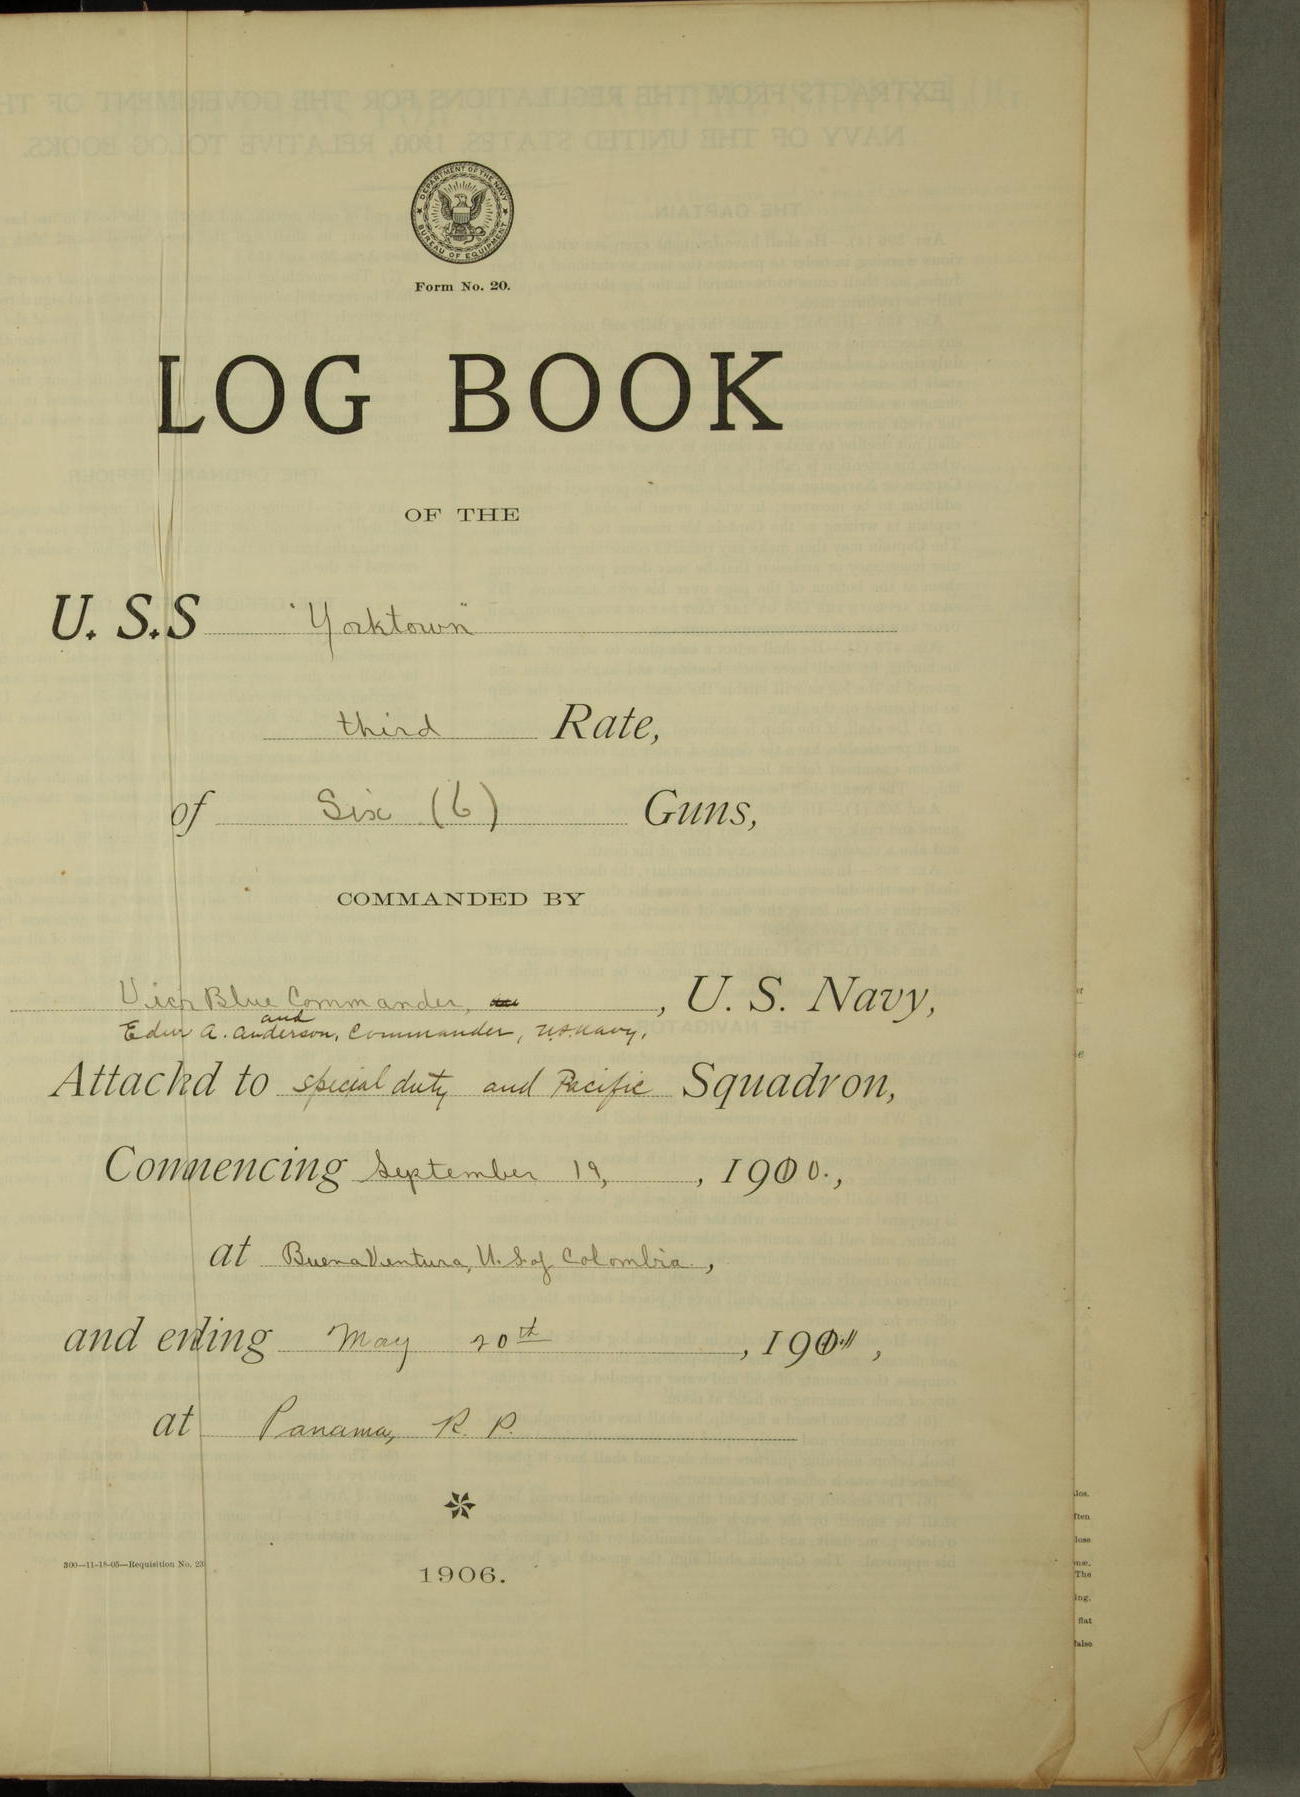 DEPARTMENT OF THE NAVY
BUREAU OF EQUIPMENT
Form No. 20.
LOG BOOK
OF THE
U. S. S "Yorktown"
third Rate,
of Six (6) Guns,
COMMANDED BY
Victor Blue Commander, , U. S. Navy,
and
Edw A. Anderson, Commander, U.S. Navy.
Attached to special duty and Pacific Squadron,
Commencing September 19, , 1910.,
at BuenaVentura, U. S. of Colombia.,
and ending May 20th , 1911,
at Panama, R. P.
300—11-18-05—Requisition No. 23
1906.